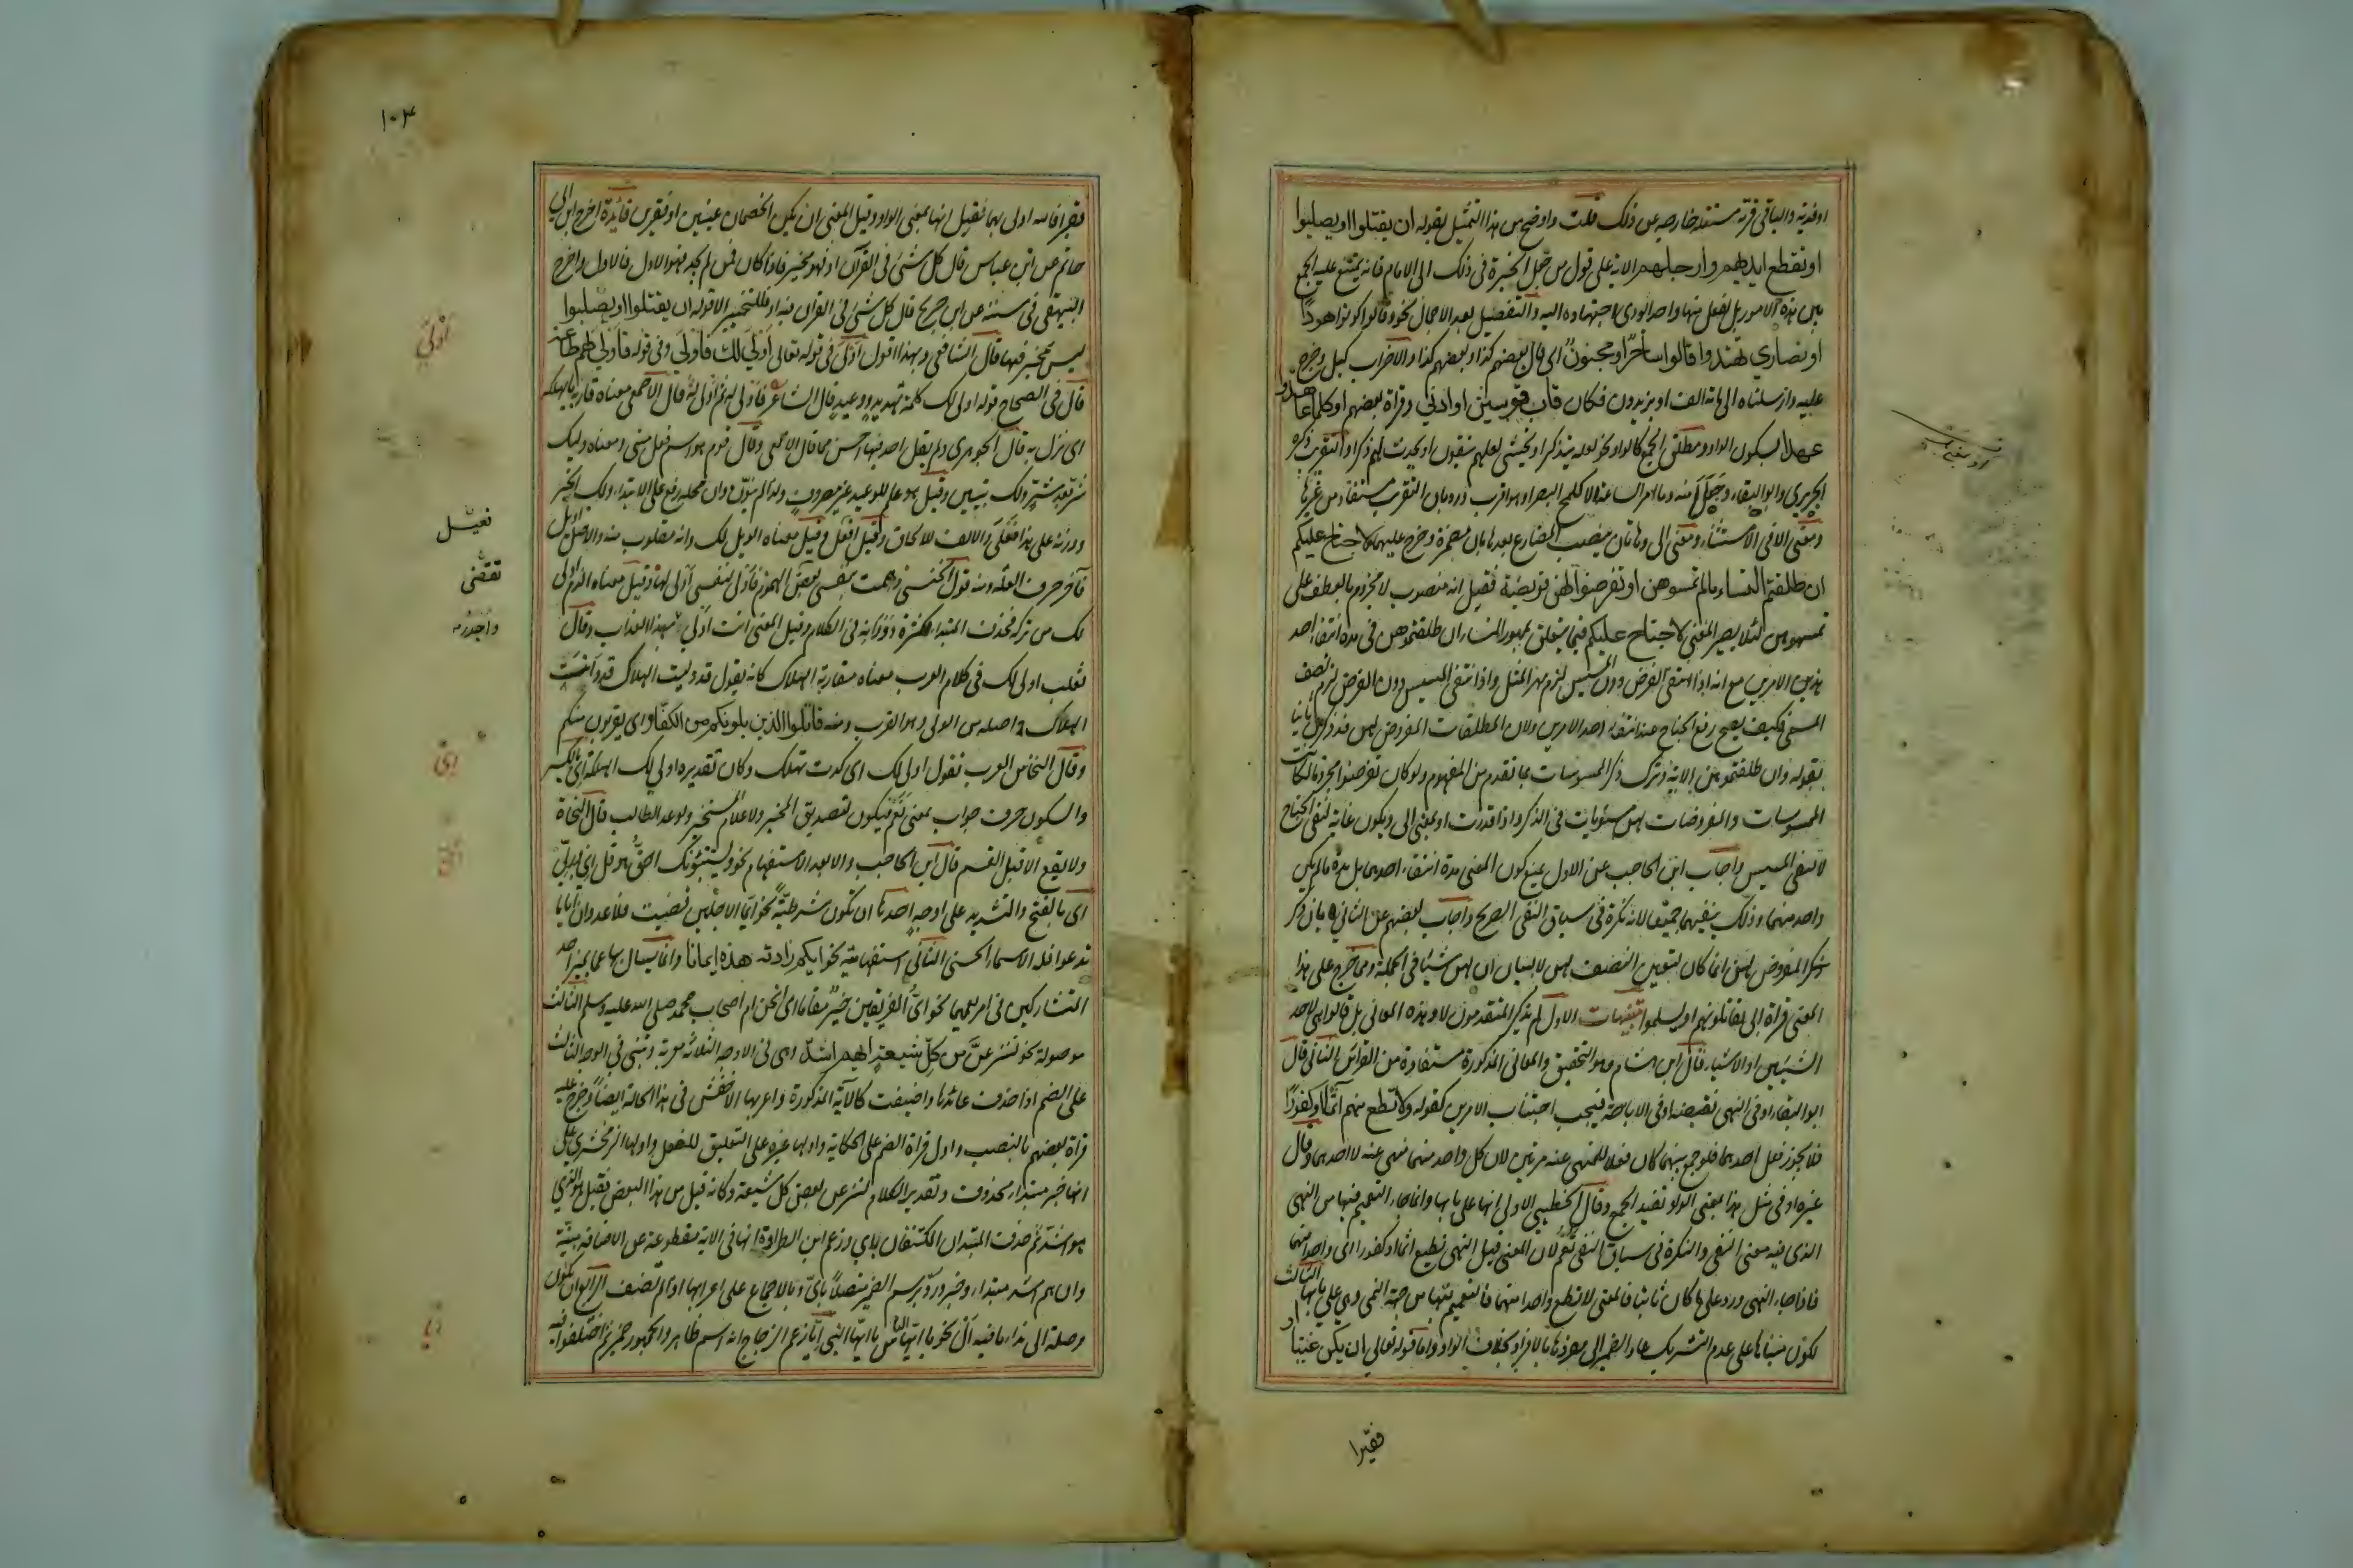 او فدية والباقی قربة مستقلة خارجة عن ذلک قلت واوضح من هذا التمثیل بقوله ان یقتلوا او یصلبوا
او تقطع ایدیهم وارجلهم الایة علی قول من جعل الخیرة فی ذلک الی الامام فانه یمتنع علیه الجمع
بین هذه الامور بل یفعل منها واحدا یؤدی اجتهاده الیه والتفصیل بعد الاجمال نحو وقالوا کونوا هودًا
او نصاری تهتدوا قالوا ساحر او مجنون ای قال بعضهم کذا وبعضهم کذا والاضراب کبل وخرج
علیه وارسلناه الی مائة الف او یزیدون فکان قاب قوسین او ادنی وقراة بعضهم اوکلما عاهدوا
عهدا بسکون الواو ومطلق الجمع کالواو نحو لعله یتذکر او یخشی لعلهم یتقون او یحدث لهم ذکرا والتقریب ذکره
الحریری وابو البقاء وجعل منه وما امر الساعة الا کلمح البصر او هو اقرب ورد بان التقریب مستفاد من غیرها
ومعنی الا فی الاستثناء ومعنی الی وهاتان ینصب المضارع بعدها بان مضمرة وخرج علیهما لا جناح علیکم
ان طلقتم النساء ما لم تمسوهن او تفرضوا لهن فریضة فقیل انه منصوب لا مجزوم بالعطف علی
تمسوهن لئلا یصیر المعنی لا جناح علیکم فیما یتعلق بمهور النساء ان طلقتموهن فی مدة انتفاء احد
هذین الامرین مع انه اذا انتفی الفرض دون المسیس لزم مهر المثل واذا انتفی المسیس دون الفرض لزم نصف
المسمی فکیف یصح رفع الجناح عند انتفاء احد الامرین ولان المطلقات المفروض لهن قد ذکرن ثانیا
بقوله وان طلقتموهن الایة وترک ذکر الممسوسات بما تقدم من المفهوم ولو کان تفرضوا مجزوما لکانت
الممسوسات والمفروضات لهن مستویات فی الذکر واذا قدرت او بمعنی الی ویکون غایة لنفی الجناح
لا لنفی المسیس واجاب ابن الحاجب عن الاول بمنع کون المعنی مدة انتفاء احدهما بل مدة ما لم یکن
واحد منهما وذلک بنفیهما جمیعا لانه نکرة فی سیاق النفی الصریح واجاب بعضهم عن الثانی بان ذکر
ذکر المفروض لهن انما کان لتعیین النصف لهن لا لبیان ان لهن شیئا فی الجملة ومما خرج علی هذا
المعنی قراة ابی تقاتلونهم او یسلموا تنبیهات الاول لم یذکر المتقدمون لاو هذه المعانی بل قالوا هی لاحد
الشیئین او الاشیاء قال ابن هشام وهو التحقیق والمعانی المذکورة مستفادة من القرائن الثانی قال
ابو البقاء او فی النهی نقیضة او فی الاباحة فیجب اجتناب الامرین کقوله ولا تطع منهم آثمًا او کفورًا
فلا یجوز فعل احدهما فلو جمع بینهما کان فعلا للمنهی عنه مرتین لان کل واحد منهما منهی عنه لا احدهما وقال
غیره او فی مثل هذا بمعنی الواو تفید الجمع وقال الخطیبی الاولی انها علی بابها وانما جاء التعمیم فیها من النهی
الذی فیه معنی النفی والنکرة فی سیاق النفی تعُمّ لان المعنی قبل النهی تطیع اثما او کفورا ای واحدا منهما
فاذا جاء النهی ورد علی ما کان ثابتا فالمعنی لا تطع واحدا منهما فالتعمیم فیهما من جهة النهی وهی علی بابها الثالث
لکون مبناها علی عدم التشریک عاد الضمیر الی مفردها بالافراد بخلاف الواو واما قوله تعالی ان یکن غنیًا او
فقیرا
١٠٣
فقیرا فالله اولی بهما فقیل انها بمعنی الواو وقیل المعنی ان یکن الخصمان غنیین او فقیرین فائدة اخرج ابن ابی
حاتم عن ابن عباس قال کل شئ فی القرآن او فهو مخیر فاذا کان فمن لم یجد فهو الاول فالاول واخرج
البیهقی فی سننه عن ابن جریج قال کل شئ فی القران فیه او فللتخییر الا قوله ان یقتلوا او یصلبوا
لیس بمخیر فیها قال الشافعی وبهذا اقول اَوْلٰی فی قوله تعالی اَولٰی لک فاولی وفی قوله فاولی لهم طاعة
قال فی الصحاح قوله اولی لک کلمة تهدید ووعید قال الشاعر فاَولی له ثم اَولی له قال الاصمعی معناه قاربه ما یهلکه
ای نزل به قال الجوهری ولم یقل احد فیها احسن مما قال الاصمعی وقال قوم هو اسم فعل مبنی ومعناه ولیک
شر بعد شرّ ولک تبیین وقیل هو علم للوعید غیر مصروف ولذا لم ینوّن وان محله رفع علی الابتداء ولک الخبر
ووزنه علی هذا فَعْلَی والالف للالحاق وقیل افعل وقیل معناه الویل لک وانه مقلوب منه والاصل اویل
فاخر حرف العلة ومنه قول الخنساء هممت بنفسی بعض الهموم فاَولی لنفسی اَولی لها وقیل معناه الذم اولی
لک من ترکه فحذف المبتداء لکثرة دَوَرانه فی الکلام وقیل المعنی انت اَولی بهذا العذاب وقال
ثعلب اولی لک فی کلام العرب معناه مقاربة الهلاک کانه یقول قد ولیت الهلاک قد دانیت
الهلاک واصله من الولی وهو القرب ومنه قاتلوا الذین یلونکم من الکفار ای یقربون منکم
وقال النحاس العرب تقول اولی لک ای کدت تهلک وکان تقدیره اولی لک الهلکة ای بالکسر
والسکون حرف جواب بمعنی نَعَم فیکون لتصدیق المخبر ولاعلام المستخبر ولوعد الطالب قال النحاة
ولا یقع الا قبل القسم قال ابن الحاجب والا بعد الاستفهام نحو ویستنبؤنک احقٌّ هو قل ای وربی
ای بالفتح والتشدید علی اوجه احدها ان تکون شرطیّة نحو ایما الاجلین قضیت فلا عدوان ایّا ما
تدعوا فله الاسماء الحسنی الثانی استفهامیة نحو ایکم زادته هذه ایمانا وانما یسال بها عما یمیز احد
المتشارکین فی امر یعمهما نحو ایُّ الفریقین خیرٌ مقاما ای انحن ام اصحاب محمد صلی الله علیه وسلم الثالث
موصولة نحو لننزعنَّ من کلّ شیعة ایهم اشد وهی فی الاوجه الثلاثة معربة وتبنی فی الوجه الثالث
علی الضم اذا حذف عائدها واضیفت کالآیة المذکورة واعربها الاخفش فی هذا الحالة ایضا وخرج علیه
قراة بعضهم بالنصب واول قراة الضم علی الحکایة واولها غیره علی التعلیق للفعل واولها الزمخشری علی
انها خبر مبتداء محذوف وتقدیر الکلام لننزعن بعض کل شیعة وکانه قیل من هذا البعض فقیل هو الذی
هو اشد ثم حذف المبتدان المکتنفان بای وزعم ابن الطراوة انها فی الایة مقطوعة عن الاضافة مبنیّة
وان هم اشد مبتداء وخبر وردّ برسم الضمیر متصلاً بایّ وبالاجماع علی اعرابها اذا لم تضف الرابع ان تکون
وصلة الی نداء ما فیه اَلْ نحو یا ایّها الناس یا ایّها النبی اِیّا زعم الزجاج انه اسم ظاهر والجمهور ضمیر ثم اختلفوا فیه
اَوْلٰی
تقتضی
اِی
ایّ
اِیّا